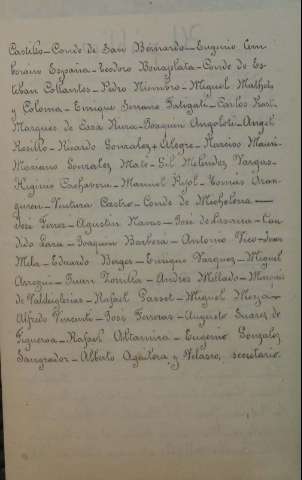 Castillo - Conde de San Bernardo - Eugenio Cem
borain España - Teodoro Bonaplata - Conde de Es-
teban Collantes - Pedro Niembro - Miguel Mathet
y Coloma - Enrique Serrano Fatigati - Carlos
Marques de Casa Riera - Joaquin Angoloti - Angel
Rosillo - Ricardo Gonzalez y Alegre - Narciso
Mariano Gonzalez - Gil Melendez Vargas -
Higinio Cachavera - Manuel - Tomás Aran
guren - Ventura Castro - Conde de Michelena -
José Ferrer - Agustin Navas - José de Laserna - Cán
dido Lara - Joaquin Barberá - Antonio Vico - Juan
Mela - Eduardo Berges - Enrique Vazquez - Miguel
Arregui - Juan Zorrilla - Andrés Mellado - Marqués
de Valdeiglesias - Rafael Gasset - Miguel Moya -
Alfredo Vincenti - José Ferreras - Augusto Suarez de
Figueroa - Rafael Altamira - Eugenio Gonzalez
Sangrador - Alberto Aguilera y Velasco, secretario.